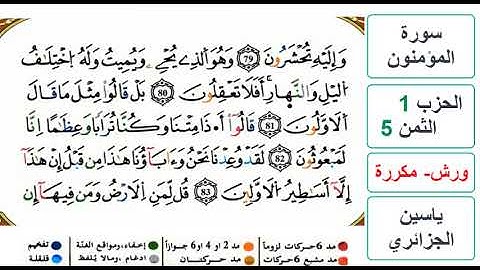 وَإِلَيْهِ تُحْشَرُونَ 79 وَهُوَ اَ۬لذِے يُحْيِۦ وَيُمِيتُ وَلَهُ اُ۪خْتِلَٰفُ
اُ۬ليْلِ وَالنَّه۪ارِۖ أَفَلَا تَعْقِلُونَ 80 بَلْ قَالُواْ مِثْلَ مَا قَالَ
اَ۬لَاوَّلُونَ 81 قَالُوٓاْ أَ.ذَا مِتْنَا وَكُنَّا تُرَاباٗ وَعِظَٰماً اِنَّا
لَمَبْعُوثُونَ 82 لَقَدْ وُعِدْنَا نَحْنُ وَءَابَآؤُنَا هَٰذَا مِن قَبْلُ إِنْ هَٰذَآ
إِلَّآ أَسَٰطِيرُ اُ۬لَاوَّلِينَ 83 قُل لِّمَنِ اِ۬لَارْضُ وَمَن فِيهَآ إِن
سورة
المؤمنون
الحزب 1
الثمن 5
ورش- مكررة
ياسين
الجزائري
مد 6 حركات لزوماً
مد 2 أو 4 أو 6 جوازاً
إخفاء، ومواقع الغنة
تفخيم
مد مشبع 6 حركات
مد حركتان
ادغام، ومالا يُلفظ
قلقلة